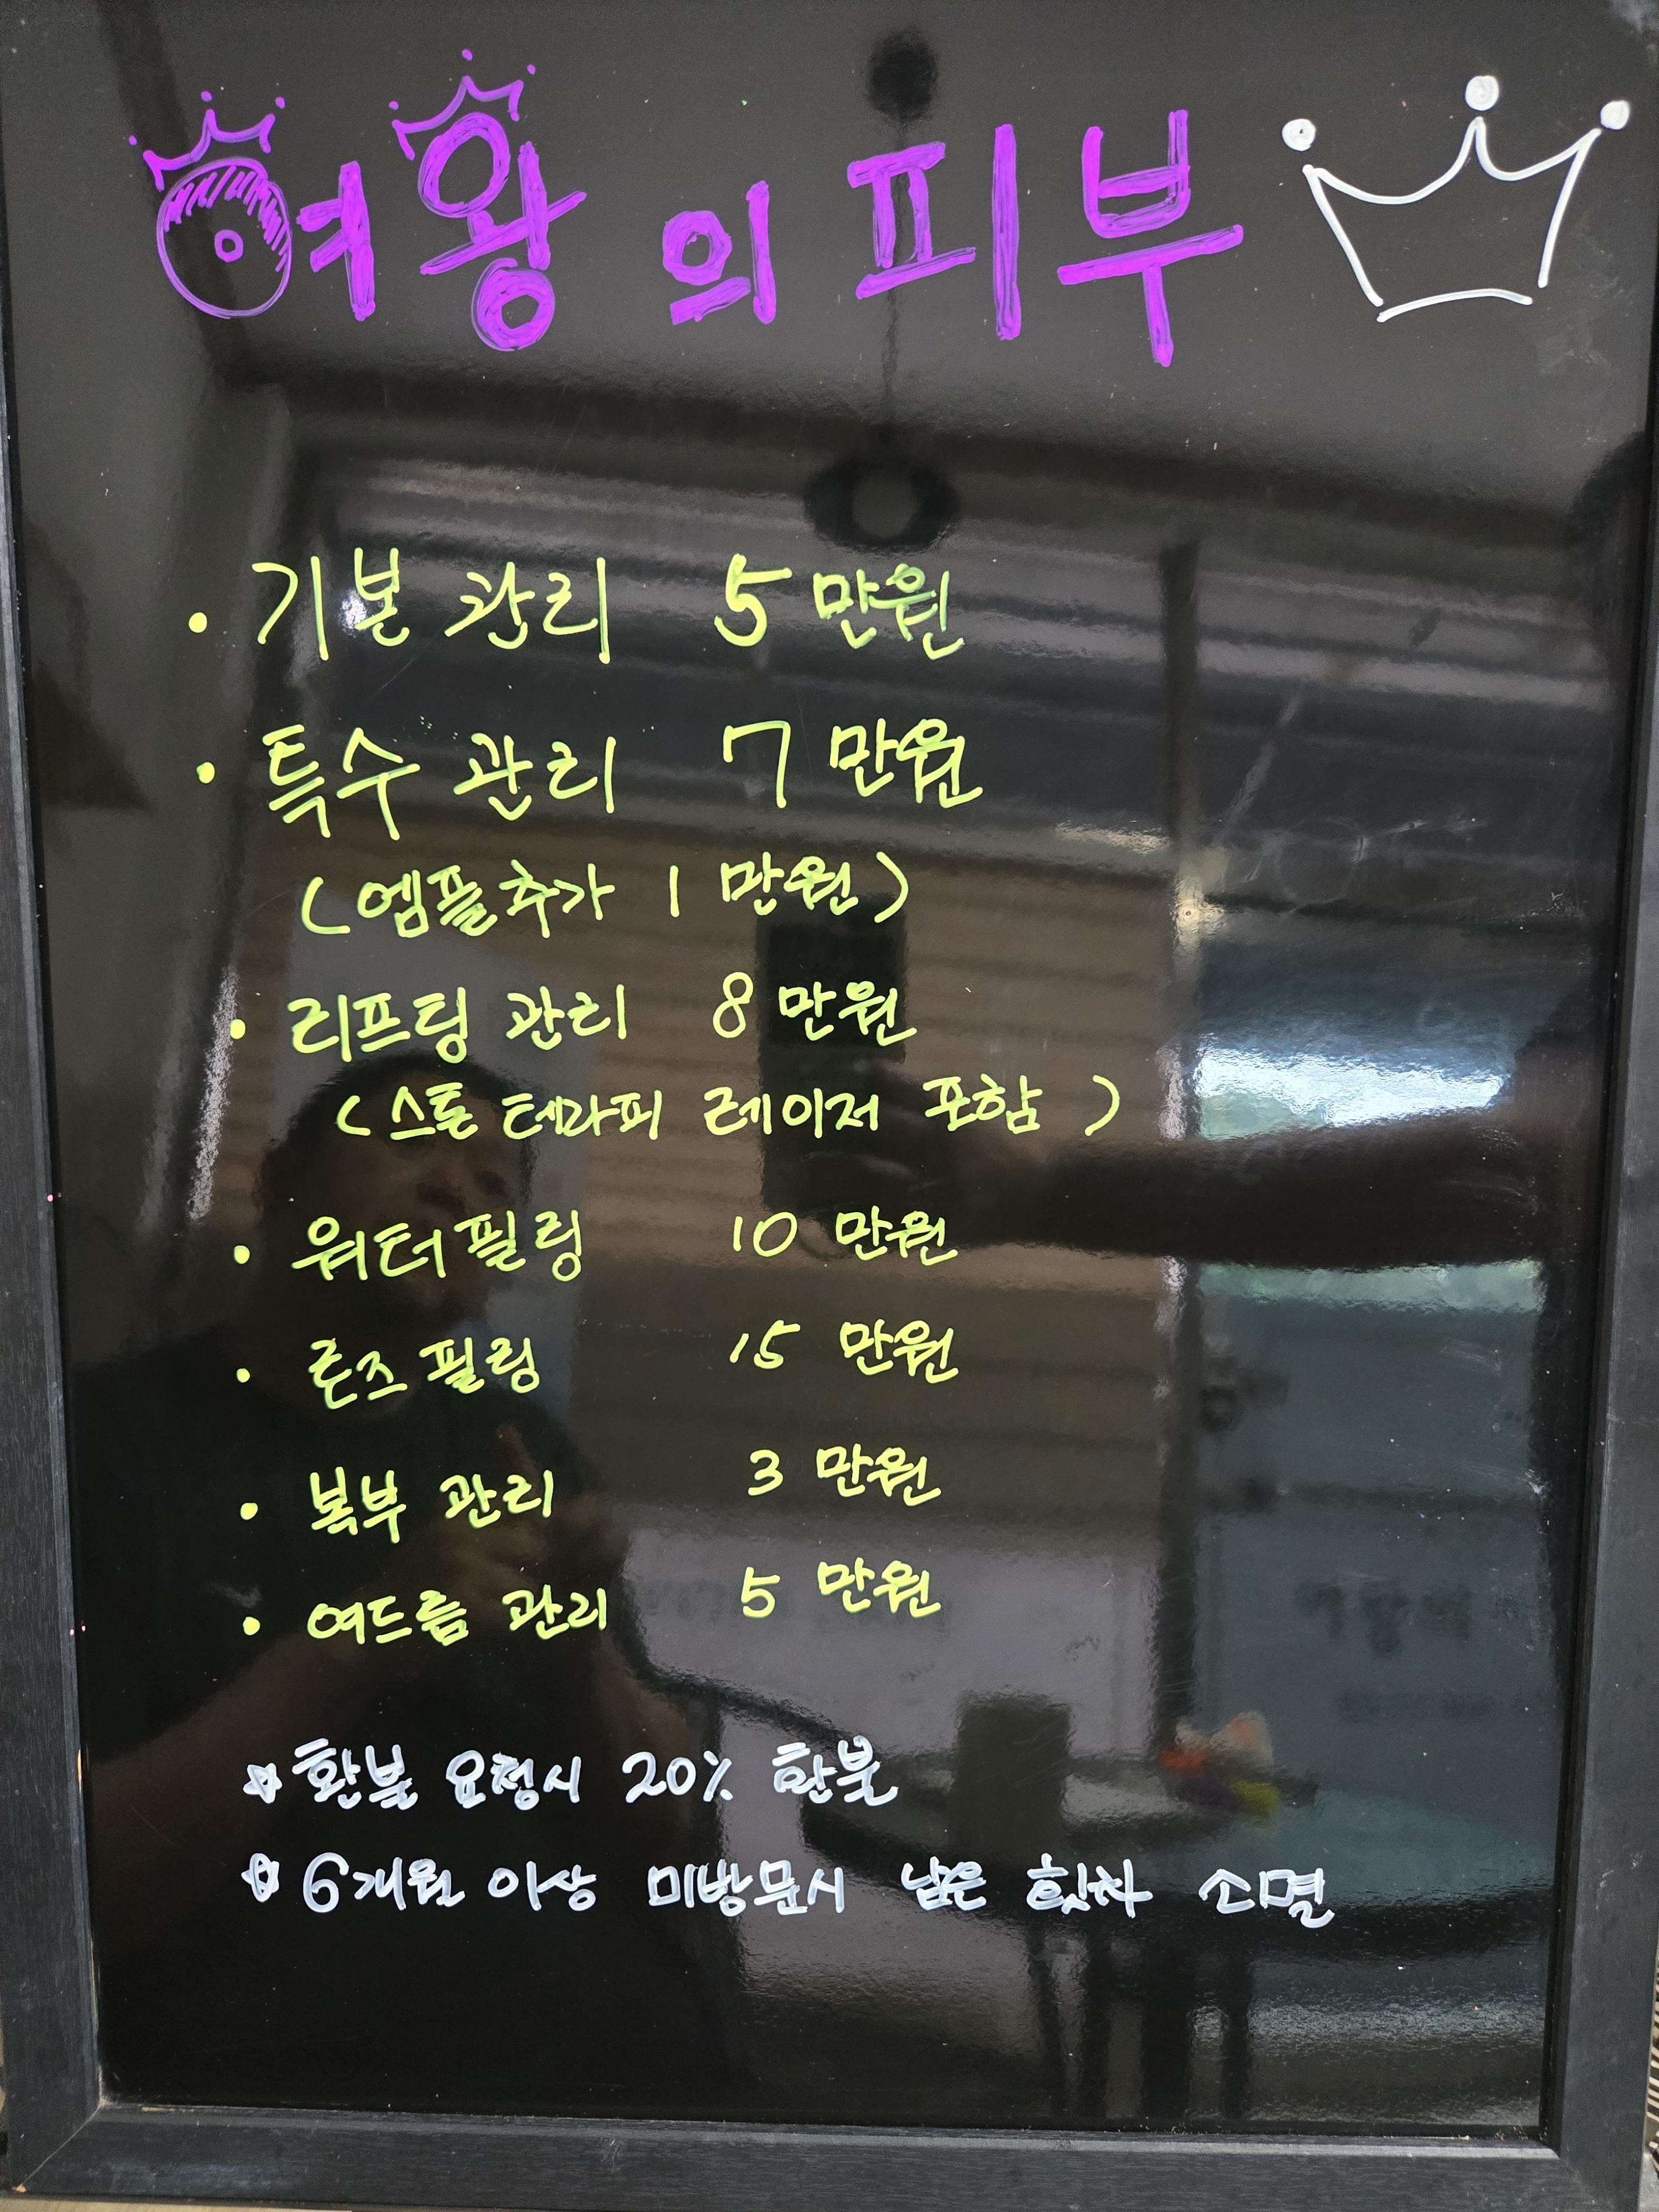 여왕의 피부
• 기본 관리 5만원
• 특수 관리 7만원
(엠플추가 1만원)
• 리프팅 관리 8만원
(스톤 테라피 레이저 포함)
• 워터필링 10만원
• 론즈필링 15만원
• 복부 관리 3만원
• 여드름 관리 5만원
☆ 환불 요청시 20% 환불
☆ 6개월 이상 미방문시 남은 횟차 소멸